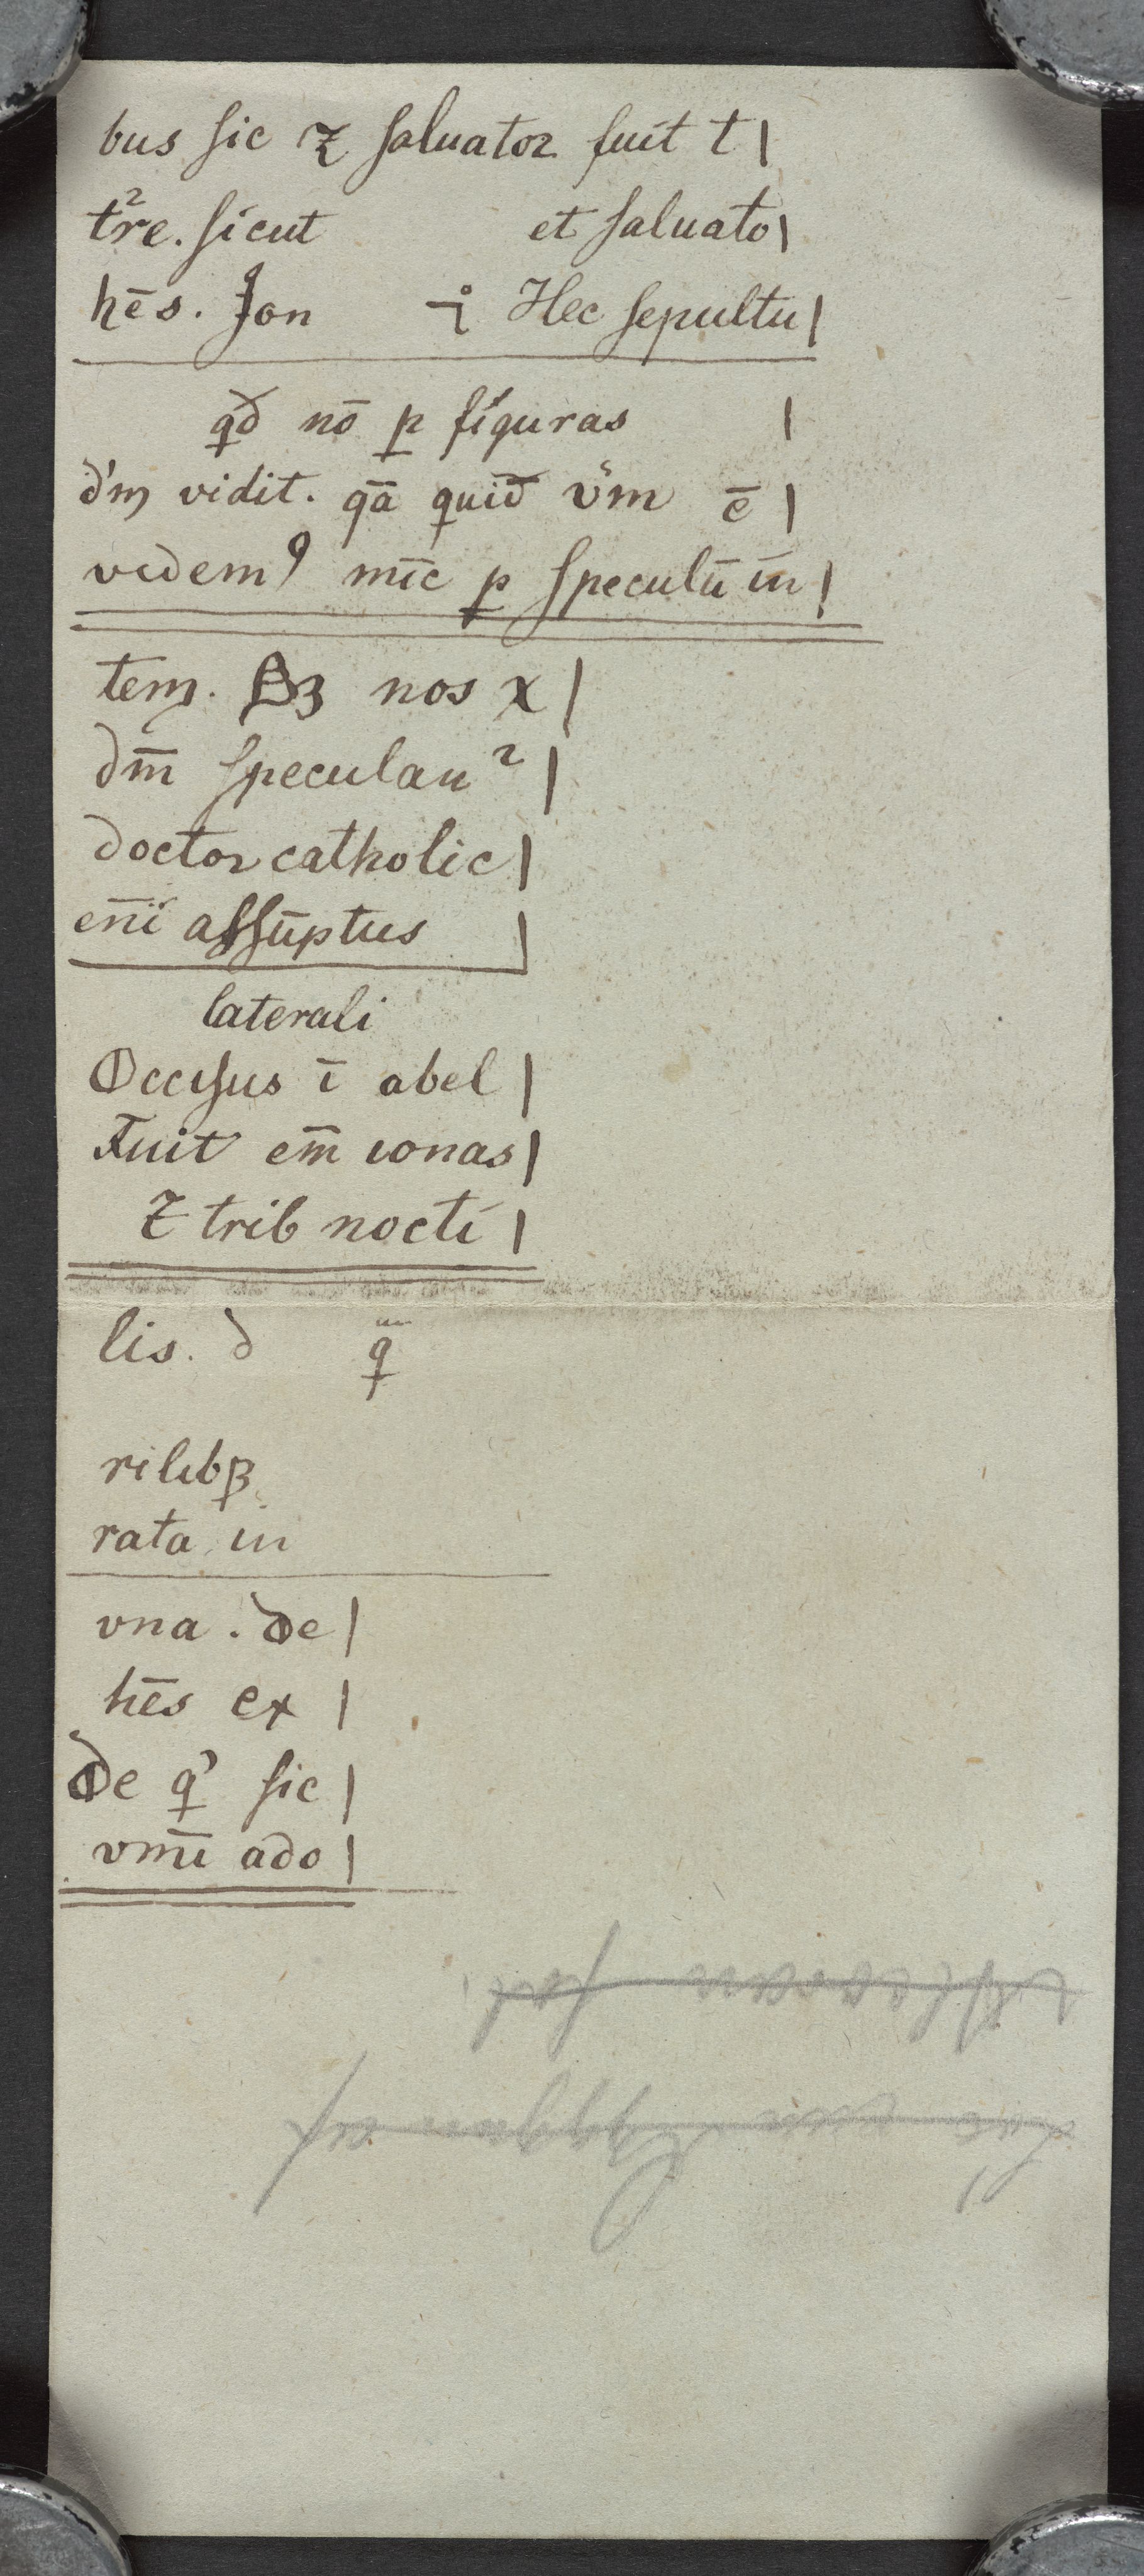 bus sic ⁊ saluator fuit t|
t᷑re. sicut et saluato|
hēs. Jon Hec sepultu|
qđ nō ꝑ figuras |
ꝺ'm vidit. qā quiđ v̊m ē|
videmꝰ nūc ꝑ speculū in|
tem. Sꝫ nos x|
ꝺm̄ speculan²|
ꝺoctor catholic|
eni̅ assūptus |
laterali
Occisus ī abel|
Fuit em̄ ionas|
⁊ trib nocti|
lis. ꝺ q̄
rilibꝫ
rata in
vna . De|
hēs ex |
De q' sic|
vnū ado|